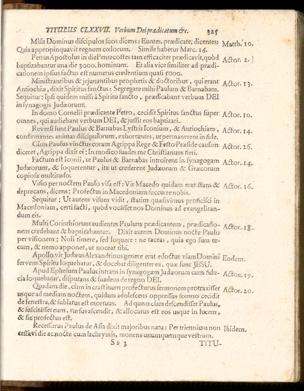 TITULUS CLXXVII. Verbum Dei prædicatum &c. 325
Misit Dominus discipulos suos dicens: Euntes prædicate, dicentes Matth. 10.
Quia appropinquavit regnum cœlorum. Simile habetur Marc. 16.
Petrus Apostolus in die Pentecostes tam efficaciter prædicavit, quòd Actor. 2.
baptizabantur una die 3000. hominum. Et alia vice similiter ad prædi-
cationem ipsius factus est numerus credentium quasi 5000.
Ministrantibus & jejunantibus prophetis & doctoribus, qui erant Actor. 13.
Antiochiæ, dixit Spiritus sanctus: Segregate mihi Paulum & Barnabam.
Sequitur: Ipsi quidem missi à Spiritu sancto, prædicabant verbum DEI
in synagogis Judæorum.
In domo Cornelii prædicante Petro, cecidit Spiritus sanctus super Actor. 10.
omnes, qui audiebant verbum DEI, & jussit eos baptizari.
Reversi sunt Paulus & Barnabas Lystris Iconium, & Antiochiam, Actor. 14.
confirmantes animas discipulorum, exhortantes, ut permanerent in fide.
Cùm Paulus vinctus coram Agrippa Rege & Festo Præside causam Actor. 26.
diceret, Agrippa dixit ei: In modico suades me Christianum fieri.
Factum est Iconii, ut Paulus & Barnabas introirent in synagogam Actor. 14.
Judæorum, & loquerentur, ita ut crederet Judæorum & Græcorum
copiosa multitudo.
Visio per noctem Paulo visa est: Vir Macedo quidam erat stans & Actor. 16.
deprecans, dicens: Profectus in Macedoniam succurre nobis.
Sequitur: Ut autem visum vidit, statim quæsivimus proficisci in
Macedoniam, certi facti, quòd vocasset nos Dominus ad evangelizan-
dum eis.
Multi Corinthiorum audientes Paulum prædicantem, Actor. 18.
credebant & baptizabantur. Dixit autem Dominus nocte Paulo
per visionem: Noli timere, sed loquere: ne taceas, quia ego sum te-
cum, & nemo apponet, ut noceat tibi.
Apollo vir Judæus Alexandrinus genere erat edoctus viam Domini Eodem.
fervens Spiritu loquebatur, & docebat diligenter ea, quæ sunt JESU.
Apud Ephesum Paulus intrans in synagogam Judæorum cum fidu- Actor. 19.
cia loquebatur, disputans & suadens de regno DEI.
Quadam die, cùm in crastinum profecturus sermonem protraxisset Actor. 20.
usque ad mediam noctem, quidam adolescens oppressus somno cecidit
de fenestra, & sublatus est mortuus. Ad quem cùm descendisset Paulus,
& suscitasset eum, rursus ascendit, & allocutus est eos usque in lucem,
& sic profectus est.
Recessurus Paulus de Asia dixit majoribus natu: Per triennium non Ibidem.
cessavi die ac nocte cum lachrymis, monens unumquemque vestrum.
Ss 3 TITU-